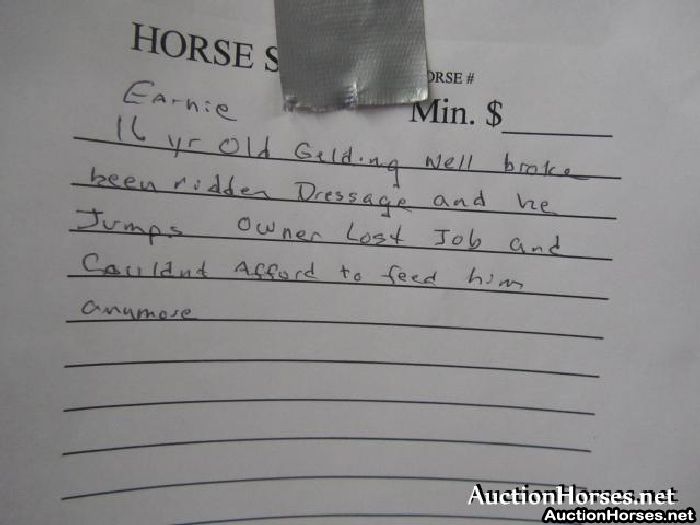 HORSE S
ORSE #
Earnie
Min. $
16 yr Old Gelding Well broke
been ridden Dressage and he
Jumps Owner Lost Job and
Couldnt Afford to feed him
anymore
AuctionHorses.net
AuctionHorses.net